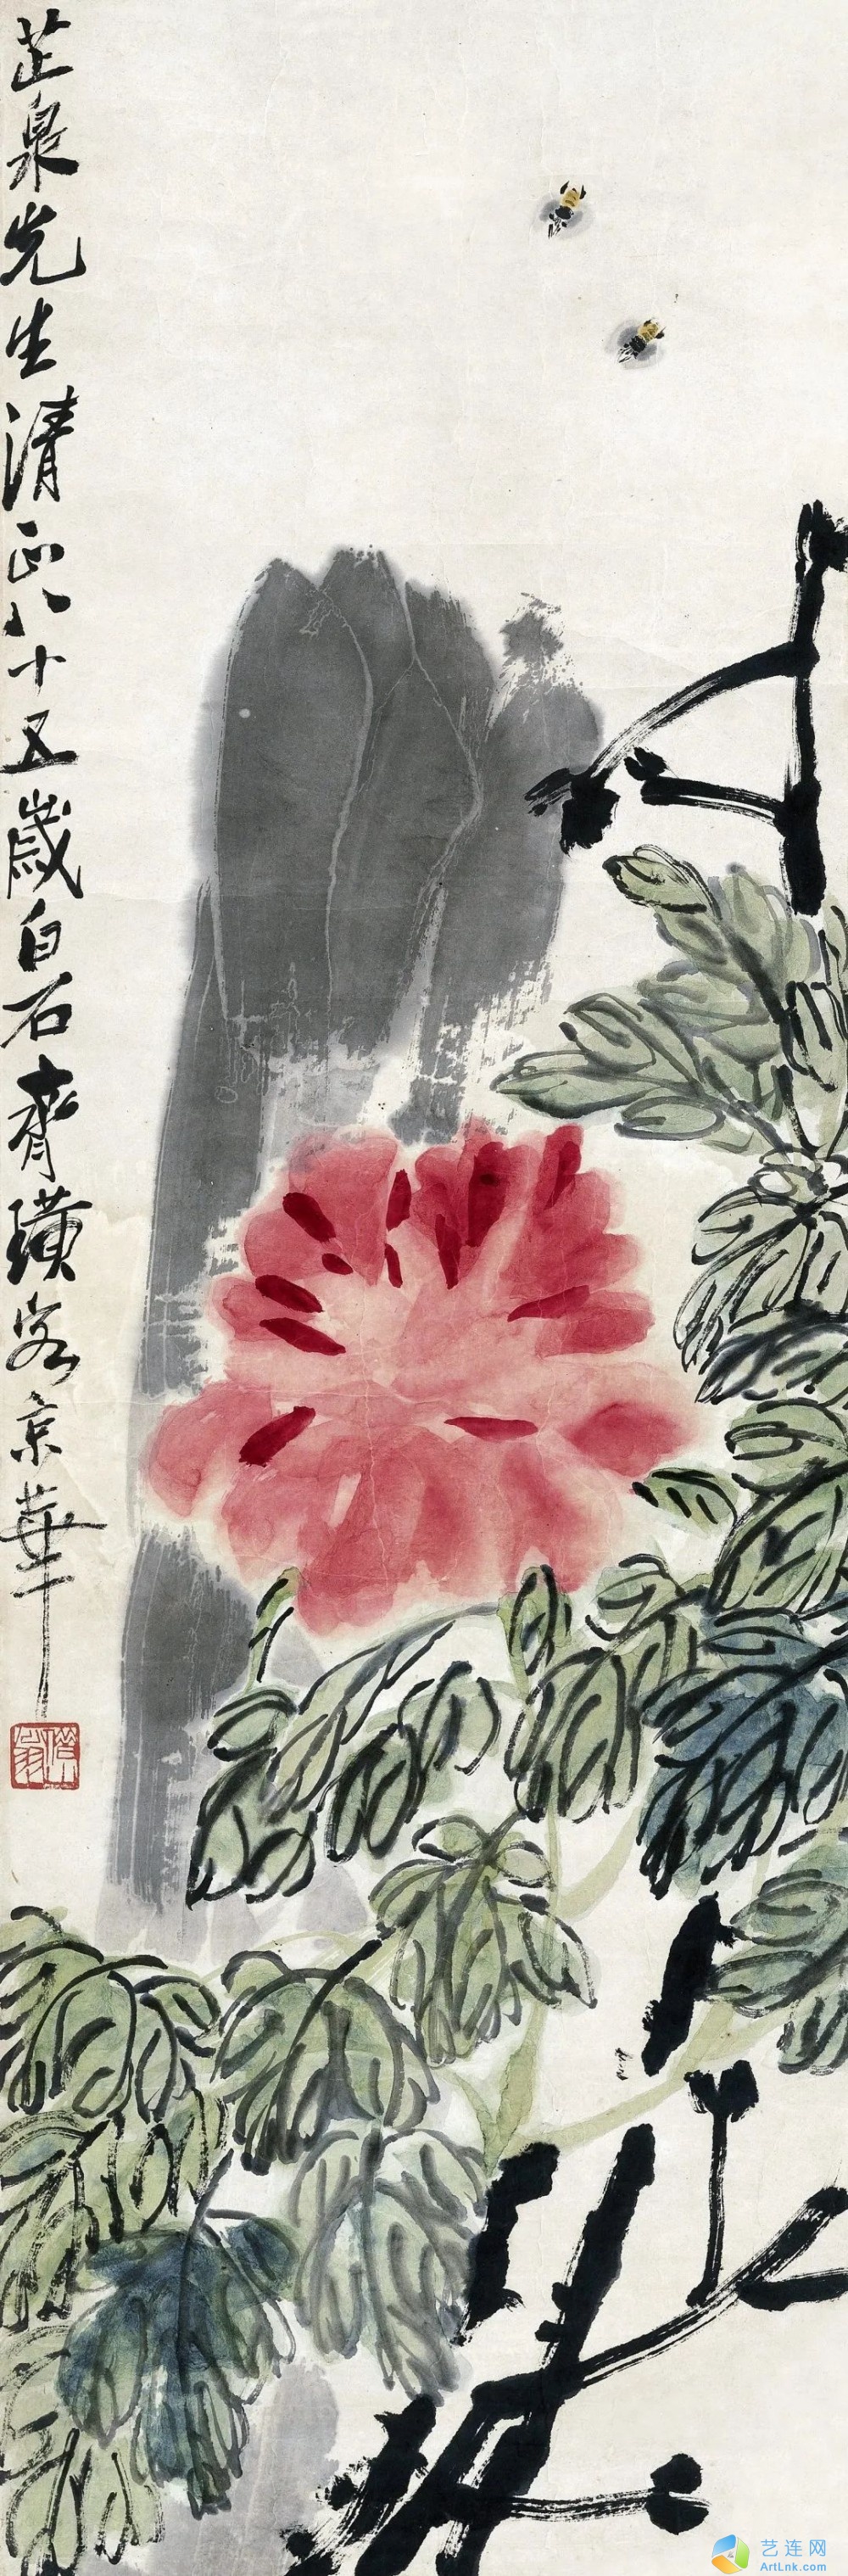 芷泉先生清正八十五歲白石齊璜客京華
璜翁
艺连网
ArtLnk.com